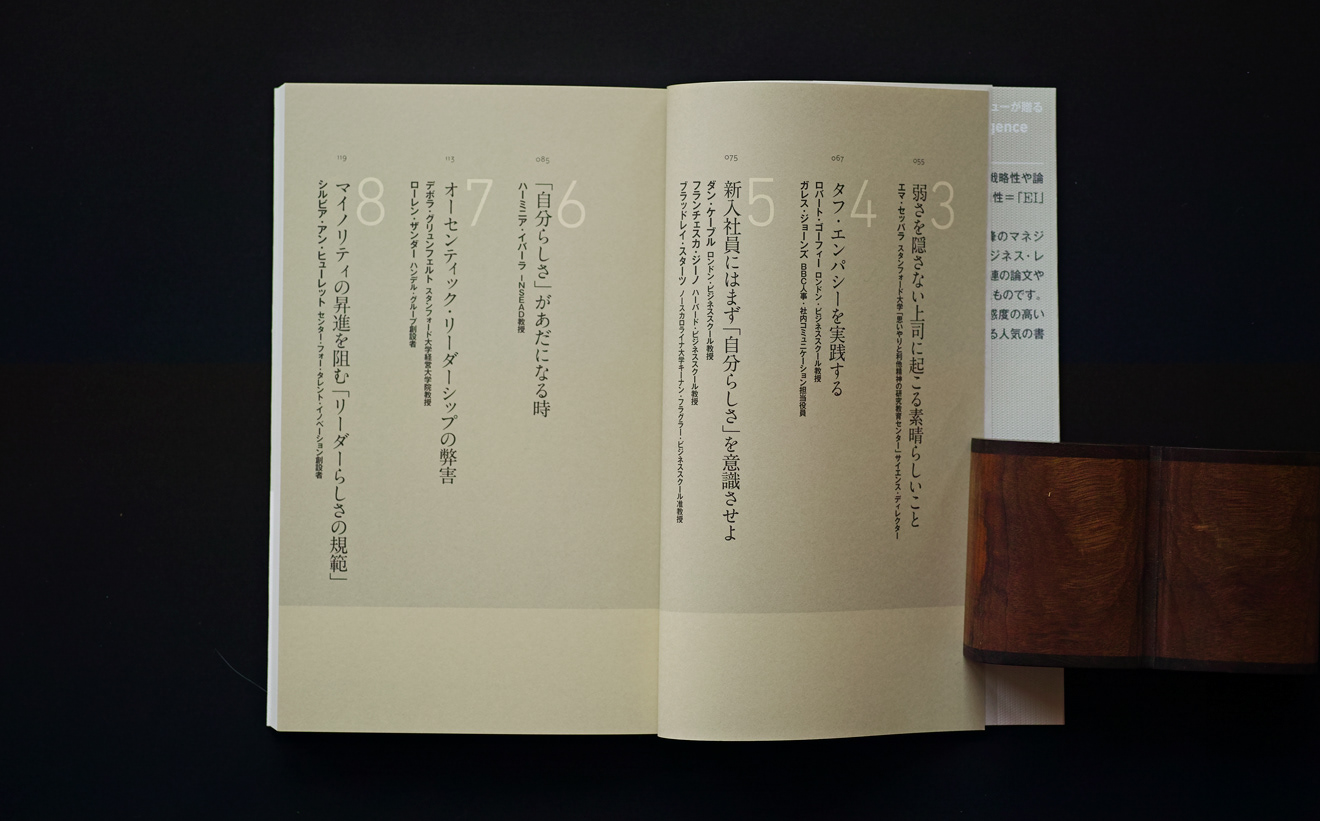 3
弱さを隠さない上司に起こる素晴らしいこと
エマ・セッパラ スタンフォード大学「思いやりと利他精神の研究教育センター」サイエンス・ディレクター
055
4
タフ・エンパシーを実践する
ロバート・ゴーフィー ロンドン・ビジネススクール教授
ガレス・ジョーンズ BBC人事・社内コミュニケーション担当役員
067
5
新入社員にはまず「自分らしさ」を意識させよ
ダン・ケーブル ロンドン・ビジネススクール教授
フランチェスカ・ジーノ ハーバード・ビジネススクール教授
ブラッドレイ・スターツ ノースカロライナ大学キーナン・フラグラー・ビジネススクール准教授
075
6
「自分らしさ」があだになる時
ハーミニア・イバーラ INSEAD教授
085
7
オーセンティック・リーダーシップの弊害
デボラ・グリュンフェルト スタンフォード大学経営大学院教授
ローレン・ザンダー ハンデル・グループ創設者
113
8
マイノリティの昇進を阻む「リーダーらしさの規範」
シルビア・アン・ヒューレット センター・フォー・タレント・イノベーション創設者
119
ューが贈る
gence
戦略性や論
性＝「EI」
のマネジ
ジネス・レ
連の論文や
ものです。
感度の高い
る人気の書